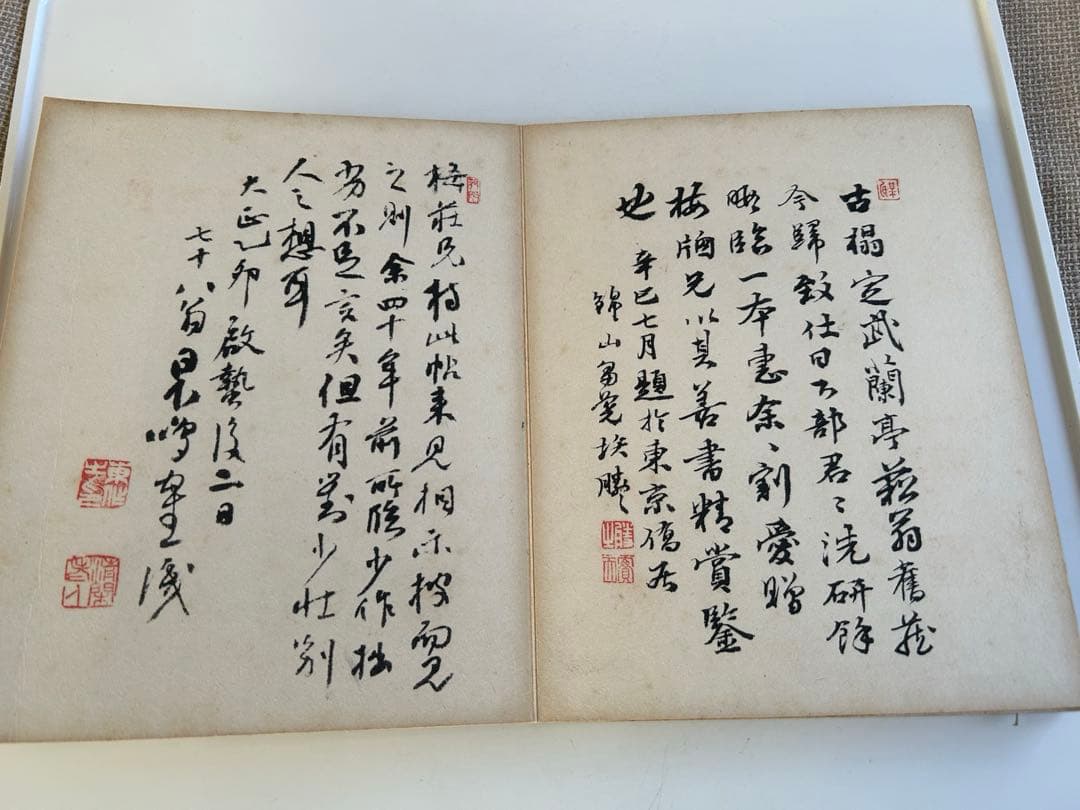 古榻定武蘭亭菘翁舊藏
今歸致仕日下部君〻洗研餘
暇臨一本惠余〻割愛贈
梅牕兄以其善書精賞鑒
也
辛巳七月題於東京僑居
錦山
梅莊兄持此帖来見相示披而見
之則余四十年前所臨少作拙
劣不足言矣但有對少壮別
人之想耳
大正乙卯啟蟄後二日
七十八翁日下鳴崔識